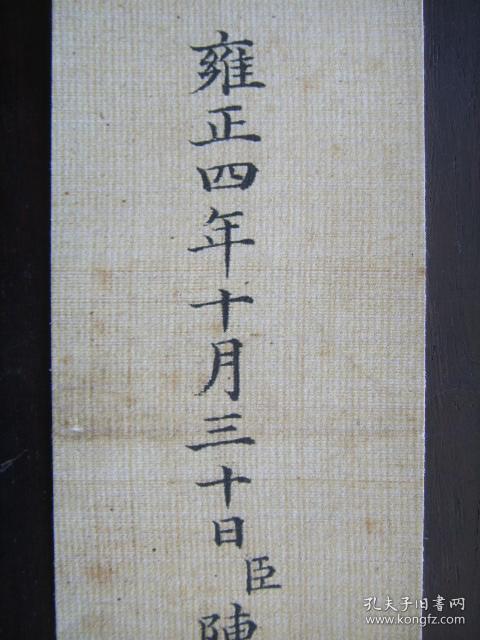 雍正四年十月三十日
臣
陳
孔夫子旧书网
www.kongfz.com